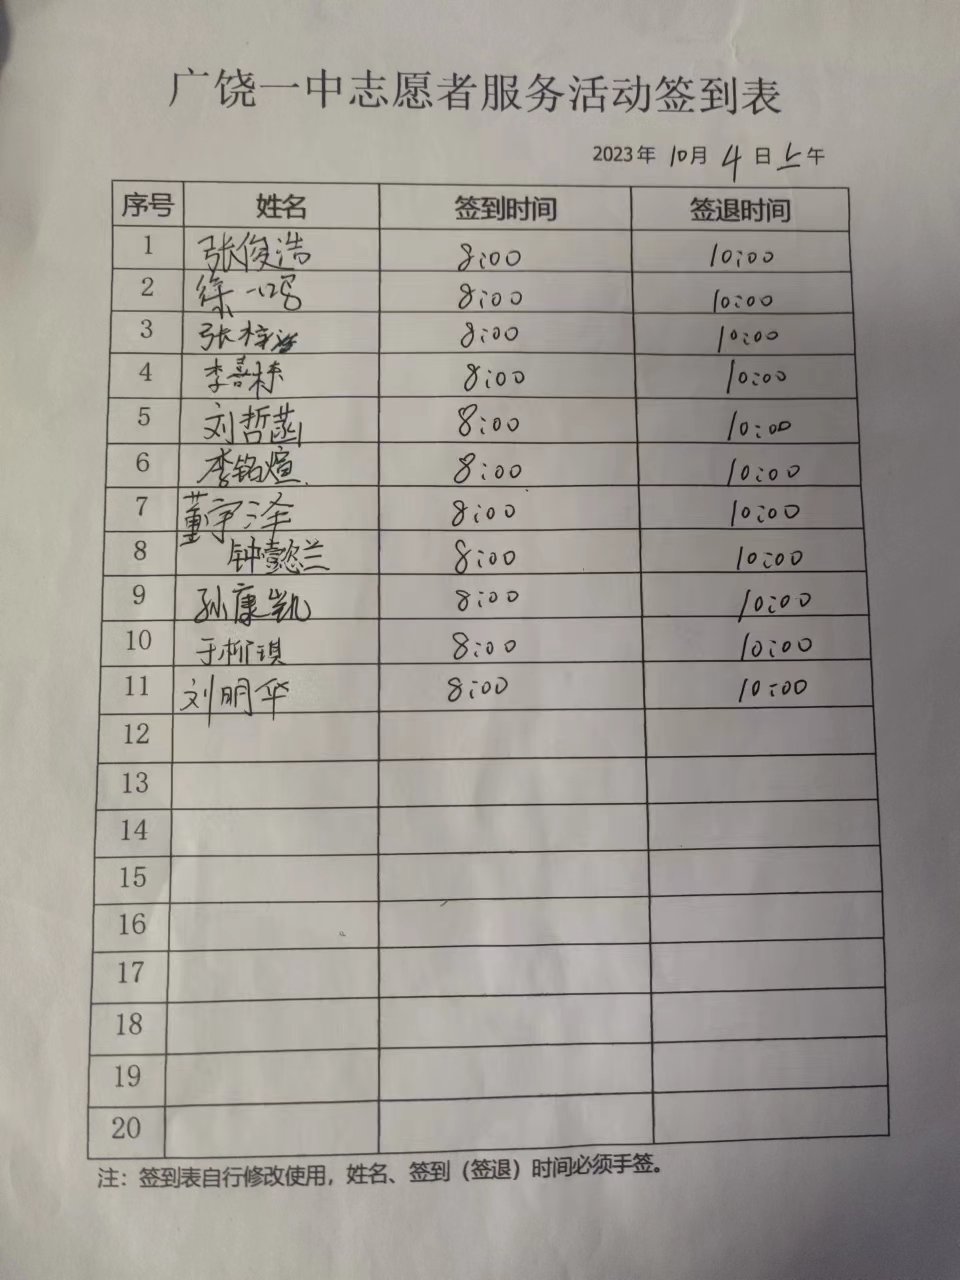 广饶一中志愿者服务活动签到表
2023年 10月 4 日上午
序号 姓名 签到时间 签退时间
1 张俊浩 8:00 10:00
2 徐一鸣 8:00 10:00
3 张梓 8:00 10:00
4 李喜棟 8:00 10:00
5 刘哲菡 8:00 10:00
6 李铭煊 8:00 10:00
7 董宇泽 8:00 10:00
8 钟懿兰 8:00 10:00
9 孙康凯 8:00 10:00
10 于柳琪 8:00 10:00
11 刘明华 8:00 10:00
12
13
14
15
16
17
18
19
20
注：签到表自行修改使用，姓名、签到（签退）时间必须手签。